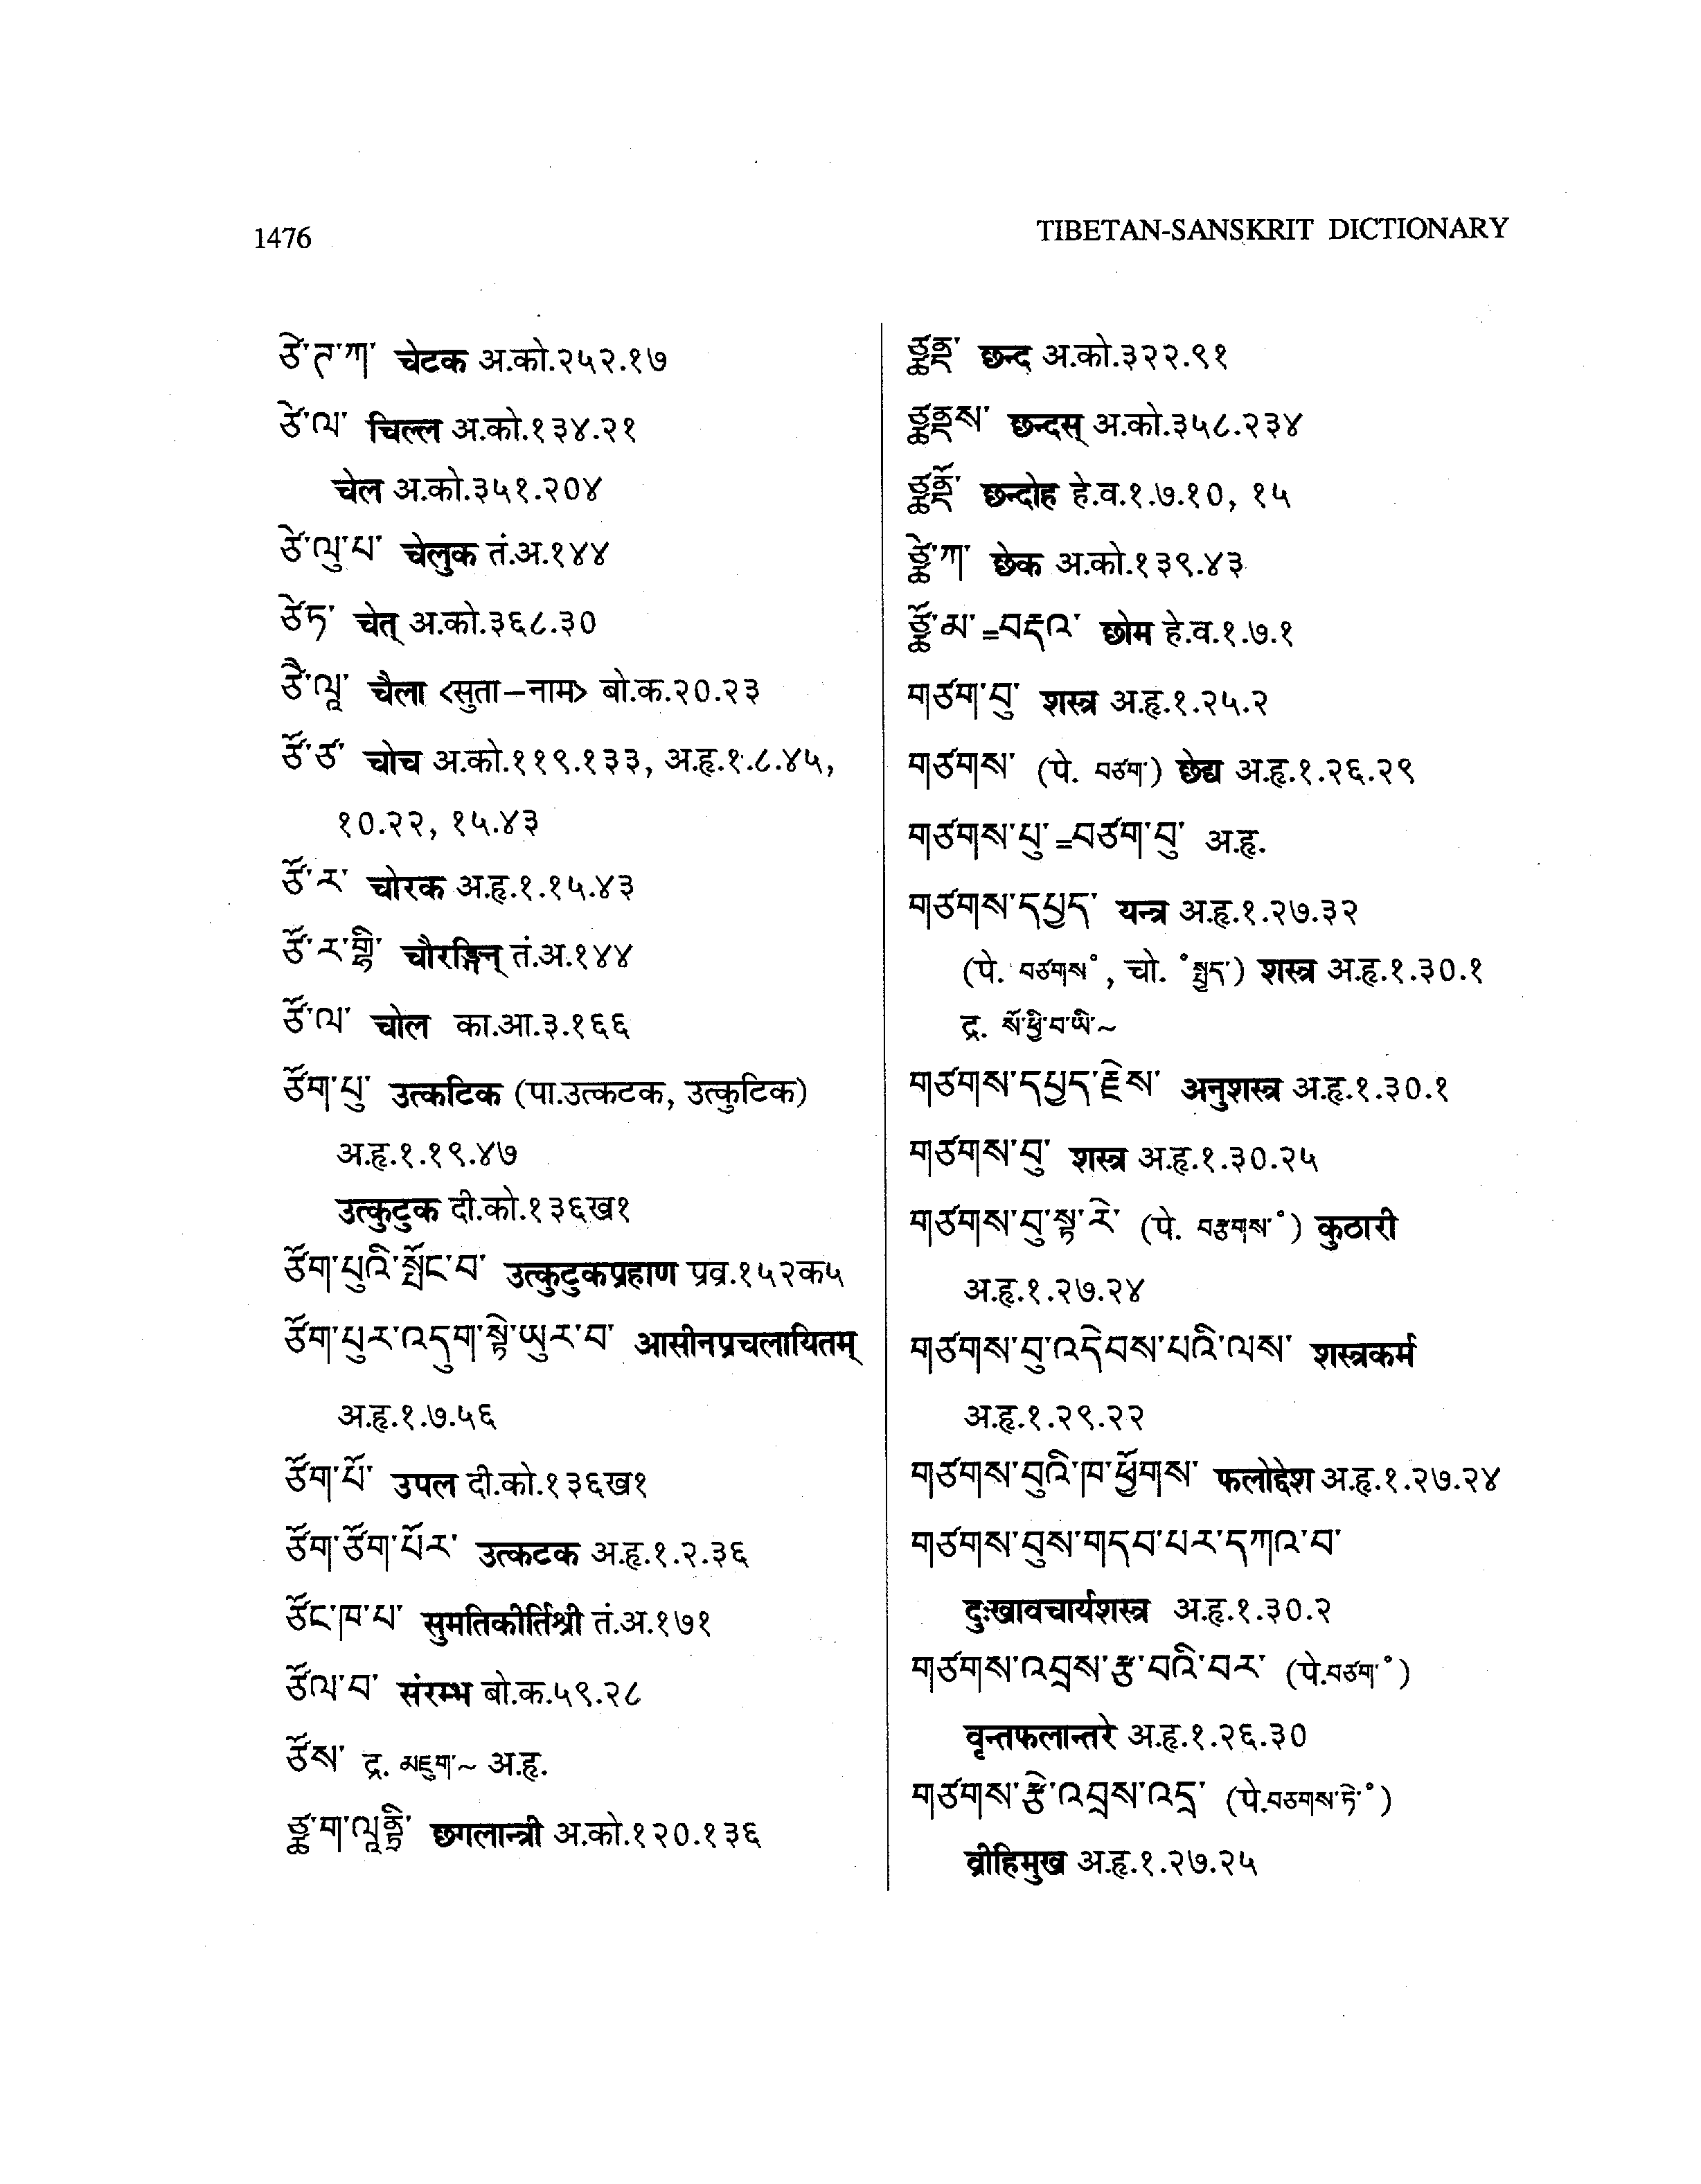 1476
TIBETAN-SANSKRIT DICTIONARY
ཙེ་ཊ་ཀ་ चेटक अ.को.२५२.१७
ཙེ་ལ་ चिल्ल अ.को.१३४.२१
चेल अ.को.३५१.२०४
ཙེ་ལུ་པ་ चेलुक तं.अ.१४४
ཙེཏ་ चेत् अ.को.३६८.३०
ཙཻ་ལཱ་ चैला <सुता–नाम> बो.क.२०.२३
ཙོ་ཙ་ चोच अ.को.११९.१३३, अ.हृ.१.८.४५,
१०.२२, १५.४३
ཙོ་ར་ चोरक अ.हृ.१.१५.४३
ཙོ་ར་གྷི་ चौरङ्गिन् तं.अ.१४४
ཙོ་ལ་ चोल का.आ.३.१६६
ཙོག་པུ་ उत्कटिक (पा.उत्कटक, उत्कुटिक)
अ.हृ.१.१९.४७
उत्कुटुक दी.को.१३६ख१
ཙོག་པུའི་སྤོང་བ་ उत्कुटुकप्रहाण प्रव्र.१५२क५
ཙོག་པུར་འདུག་སྟེ་ཡུར་བ་ आसीनप्रचलायितम्
अ.हृ.१.७.५६
ཙོག་པོ་ उपल दी.को.१३६ख१
ཙོག་ཙོག་པོར་ उत्कटक अ.हृ.१.२.३६
ཙོང་ཁ་པ་ सुमतिकीर्तिश्री तं.अ.१७१
ཙོལ་བ་ संरम्भ बो.क.५९.२८
ཙོས་ द्र. མཇུག་~ अ.हृ.
ཙྪ་ག་ལཱནྟྲི་ छगलान्त्री अ.को.१२०.१३६
ཙྪནྡ་ छन्द अ.को.३२२.९१
ཙྪནྡས་ छन्दस् अ.को.३५८.२३४
ཙྪནྡོ་ छन्दोह हे.व.१.७.१०, १५
ཙྪེ་ཀ་ छेक अ.को.१३९.४३
ཙྪོ་མ་=བརྡའ་ छोम हे.व.१.७.१
གཙག་བུ་ शस्त्र अ.हृ.१.२५.२
གཙགས་ (पे. བཙག་) छेद्य अ.हृ.१.२६.२९
གཙགས་པུ་=བཙག་བུ་ अ.हृ.
གཙགས་དཔྱད་ यन्त्र अ.हृ.१.२७.३२
(पे. བཙགས°, चो. °སྤྱད་) शस्त्र अ.हृ.१.३०.१
द्र. སོ་ཕྱི་བ་ཡི་~
གཙགས་དཔྱད་རྗེས་ अनुशस्त्र अ.हृ.१.३०.१
གཙགས་བུ་ शस्त्र अ.हृ.१.३०.२५
གཙགས་བུ་སྟ་རེ་ (पे. བརྩགས་°) कुठारी
अ.हृ.१.२७.२४
གཙགས་བུ་འདེབས་པའི་ལས་ शस्त्रकर्म
अ.हृ.१.२९.२२
གཙགས་བུའི་ཁ་ཕྱོགས་ फलोद्देश अ.हृ.१.२७.२४
གཙགས་བུས་གདབ་པར་དཀའ་བ་
दुःखावचार्यशस्त्र अ.हृ.१.३०.२
གཙགས་འབྲས་རྩ་བའི་བར་ (पे.བཙག་°)
वृन्तफलान्तरे अ.हृ.१.२६.३०
གཙགས་རྩེ་འབྲས་འདྲ་ (पे.བཅགས་ཏེ་°)
व्रीहिमुख अ.हृ.१.२७.२५